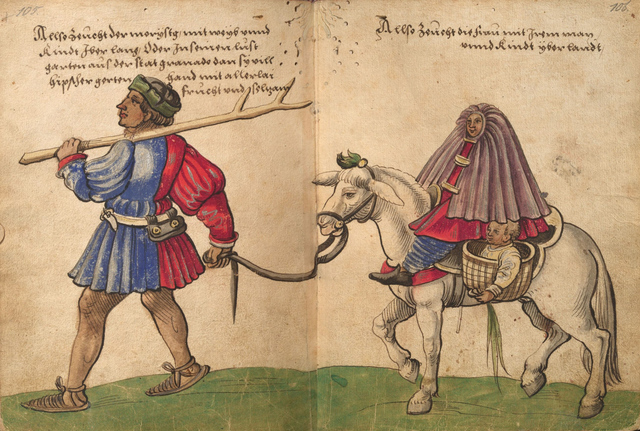 105.
Allso Zeucht der morysch mit weyb vnnd
Kindt Jber lang Oder Jn seinen lust
garten aus der stat granado dan sy vill
hipscher gerten hand mit allerlai
frucht vnd
106.
Allso Zeucht die frau mit Jrem man
vnnd Kindt yber landt